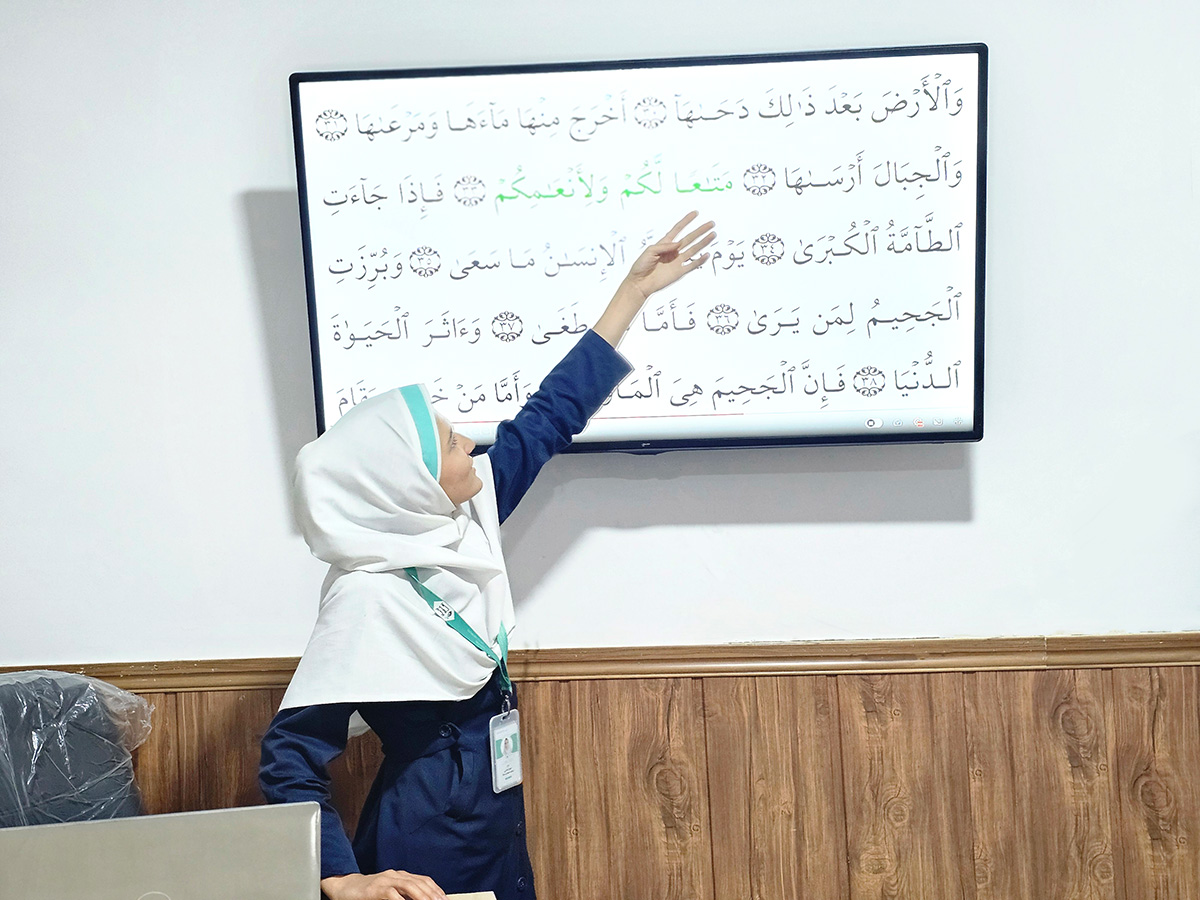 وَٱلْأَرْضَ بَعْدَ ذَٰلِكَ دَحَىٰهَآ ٣٠ أَخْرَجَ مِنْهَا مَآءَهَا وَمَرْعَىٰهَا ٣١
وَٱلْجِبَالَ أَرْسَىٰهَا ٣٢ مَتَٰعًا لَّكُمْ وَلِأَنْعَٰمِكُمْ ٣٣ فَإِذَا جَآءَتِ
ٱلطَّآمَّةُ ٱلْكُبْرَىٰ ٣٤ يَوْمَ ٱلْإِنسَٰنُ مَا سَعَىٰ ٣٥ وَبُرِّزَتِ
ٱلْجَحِيمُ لِمَن يَرَىٰ ٣٦ فَأَمَّا طَغَىٰ ٣٧ وَءَاثَرَ ٱلْحَيَوٰةَ
ٱلدُّنْيَا ٣٨ فَإِنَّ ٱلْجَحِيمَ هِىَ وَأَمَّا مَنْ مَقَامَ